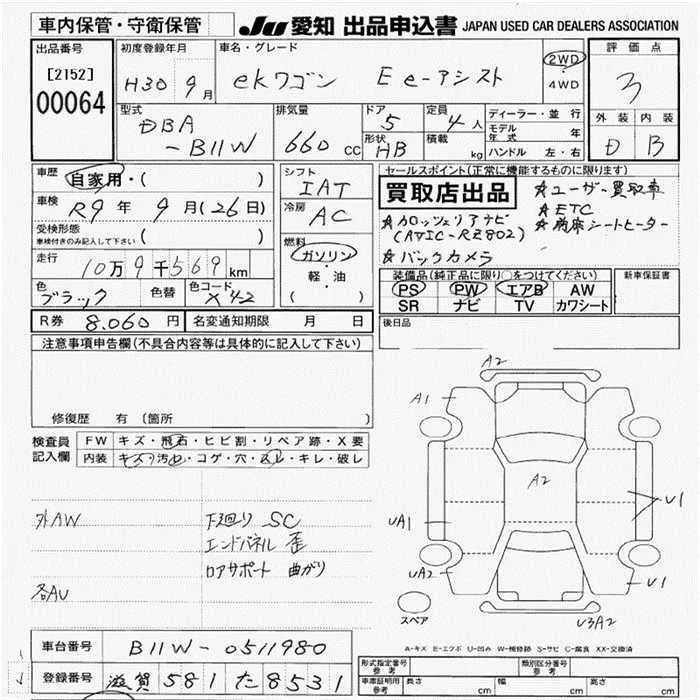 車内保管・守衛保管
JU 愛知 出品申込書 JAPAN USED CAR DEALERS ASSOCIATION
出品番号
[2152]
00064
初度登録年月
H30 9月
車名・グレード
ekワゴン E e-アシスト
2WD
・
4WD
評価点
3
外装 内装
D B
型式
DBA
-B11W
排気量
660 cc
ドア
5
形状
HB
定員
4人
積載
kg
ディーラー・並行
モデル年式 年
ハンドル 左・右
車歴
自家用・( )
車検
R9年 9月(26日)
受検形態
車検付きのみ記入して下さい ( )
走行
10万9千569km
色
ブラック
色替
色コード
X42
シフト
IAT
冷房
AC
燃料
ガソリン
軽・油
( )
セールスポイント(正常に機能するものに限ります)
買取店出品
☆ユーザー買取車
☆ETC
☆カロッツェリアナビ
(AVIC-RZ802)
シートヒーター
☆バックカメラ
装備品(純正品に限り○をつけてください)
PS PW エアB AW
SR ナビ TV カワシート
新車保証書
後日品
R券 8.060円 名変通知期限 月 日
注意事項申告欄(不具合内容等は具体的に記入して下さい)
修復歴 有 (箇所 )
検査員記入欄
FW キズ・飛石・ヒビ割・リペア跡・X要
内装 キズ・汚レ・コゲ・穴・スレ・キレ・破レ
外AW
下廻り SC
エンドパネル 歪
ロアサポート 曲がり
各AU
A2
A1
A2
UA1
U1
UA2
U1
U3A2
スペア
A-キズ E-エクボ U-凹み W-補修跡 S-サビ C-腐食 XX-交換済
車台番号 B11W-0511980
登録番号 滋賀 581 た 8531
形式指定番号 参考
類別区分番号 参考
車庫証明用 参考 長さ cm 幅 cm 高さ cm